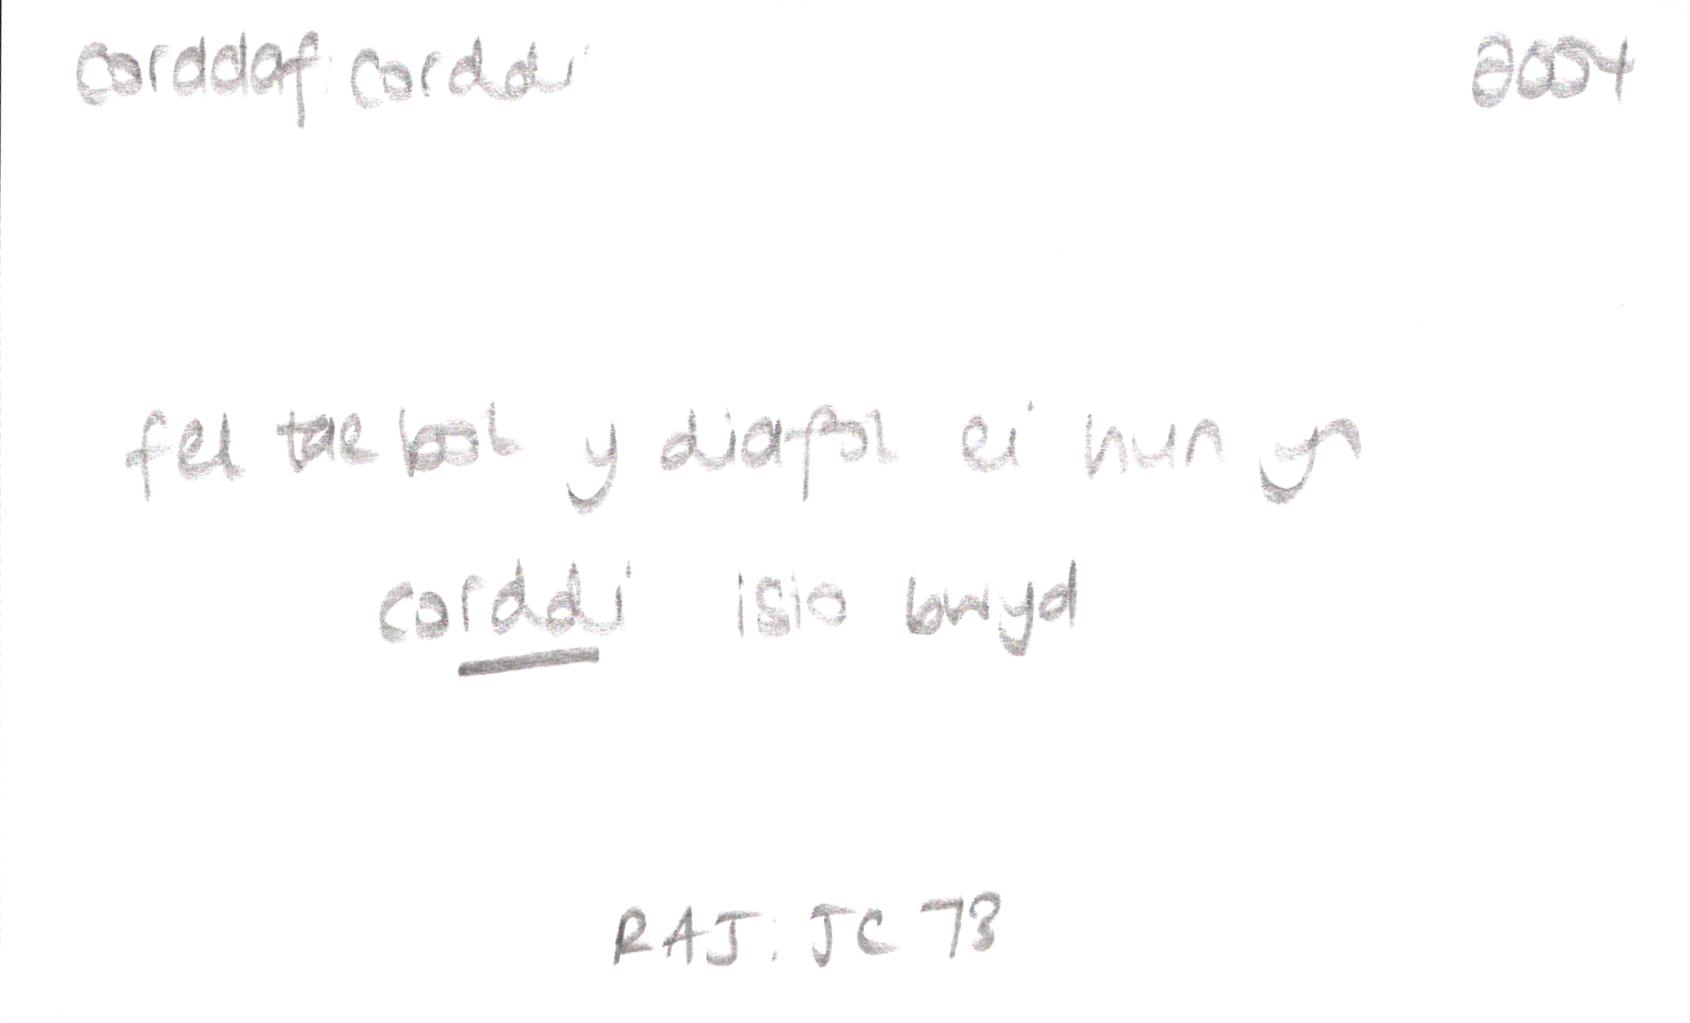 corddaf: corddi 2004
fel tae bol y diafol ei hun yn
corddi isio bwyd
RAJ: JC 73